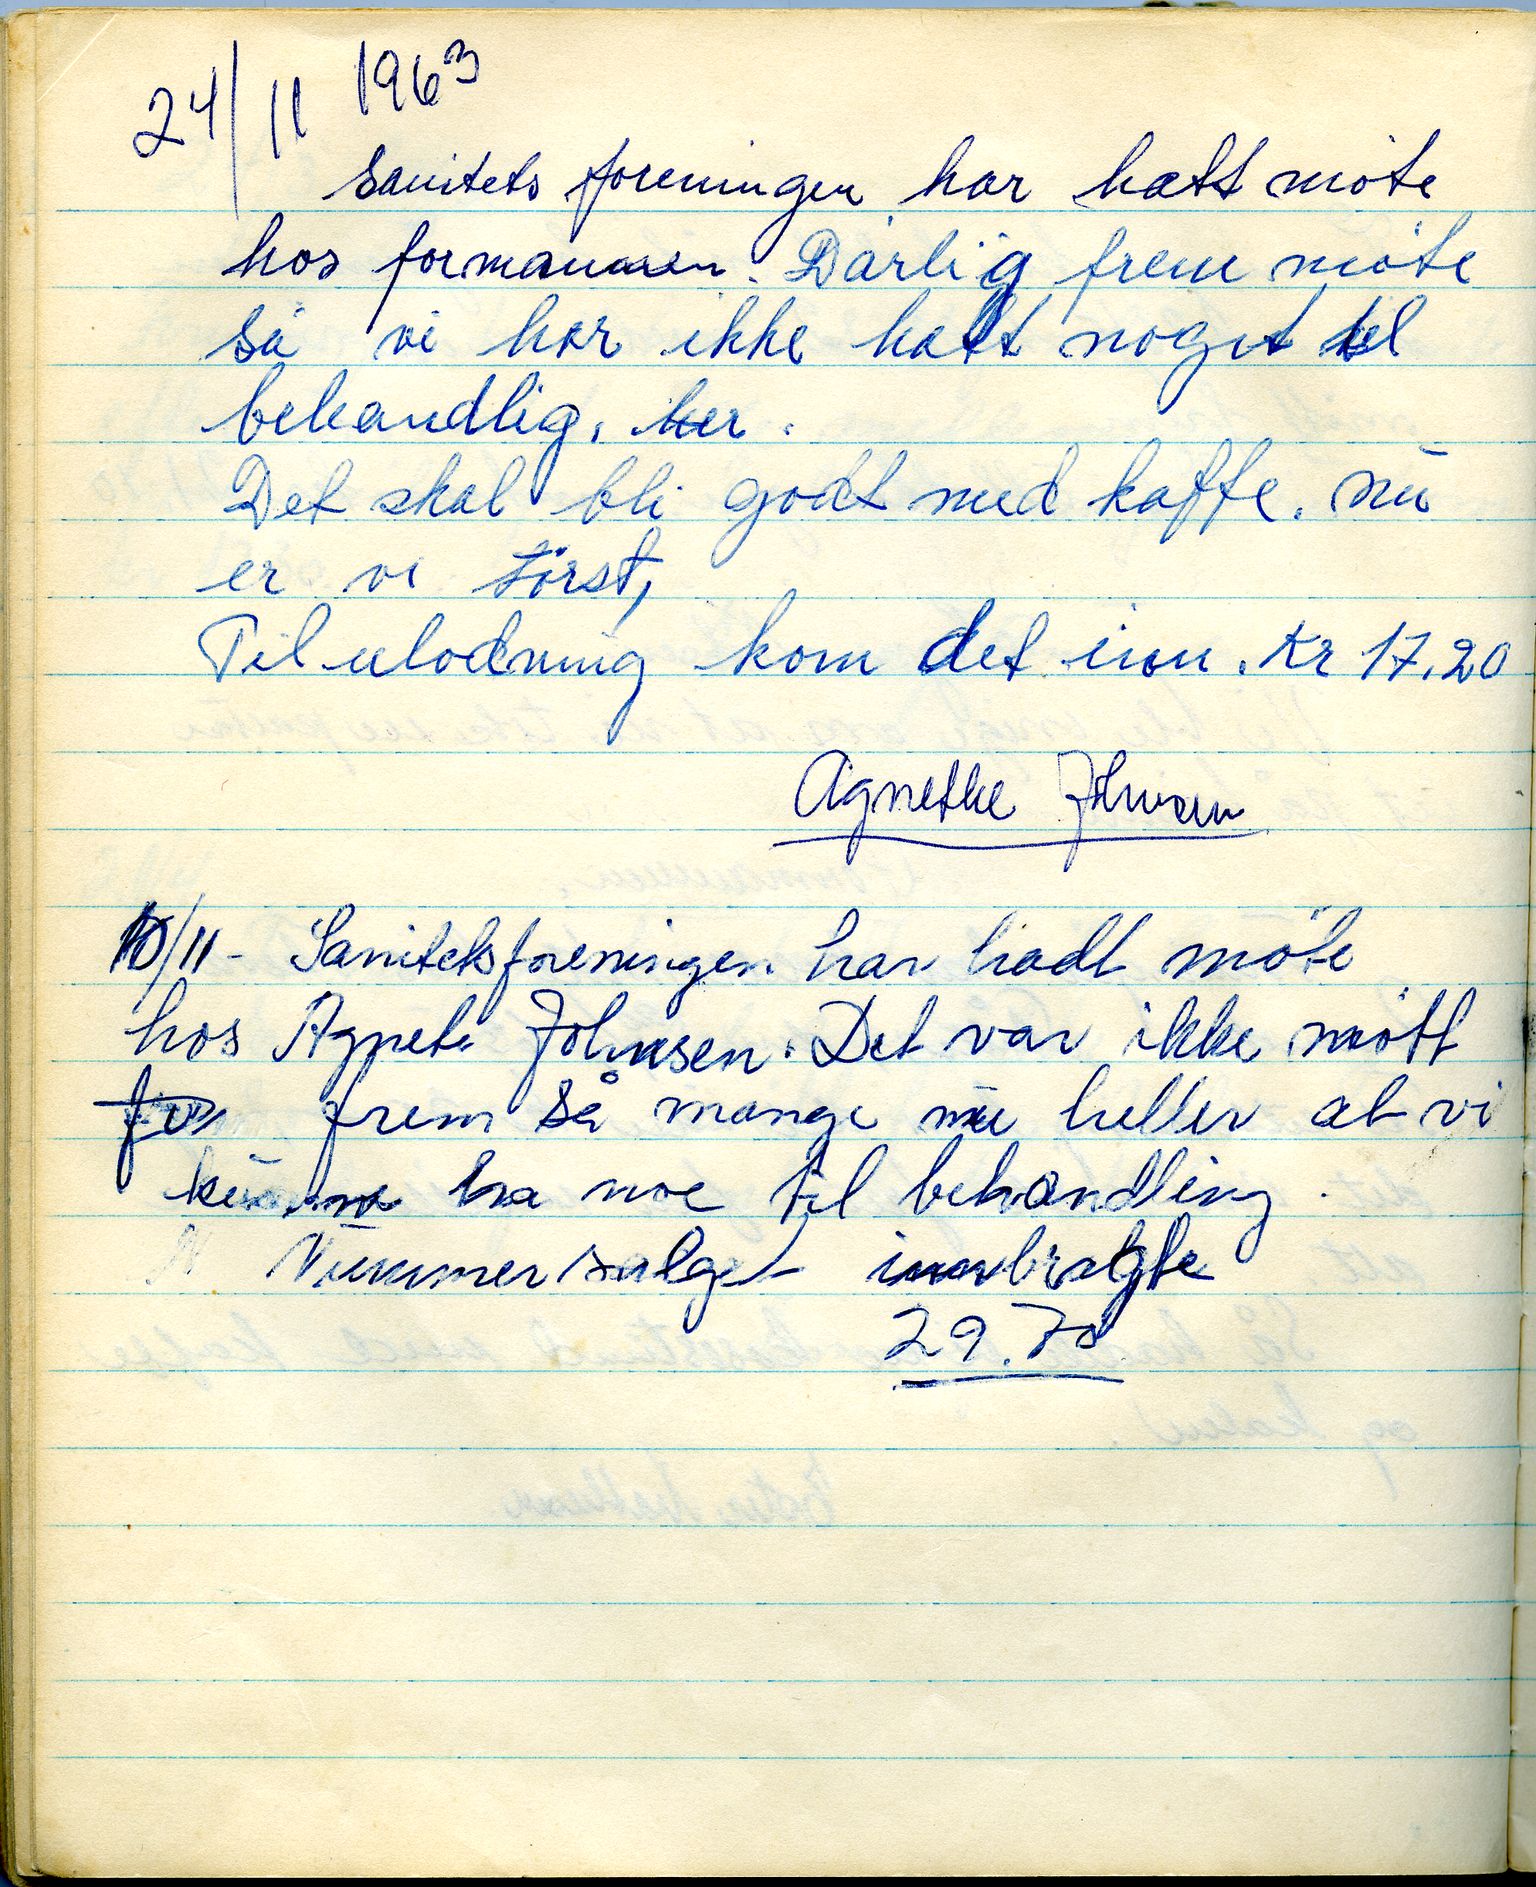 24/11 1963
Sanitets foreningen har hatt møte
hos formannen. Dårlig frem møte
så vi har ikke hatt noget til
behandlig. her.
Det skal bli godt med kaffe. nu
er vi törst,
Til utlodning kom det inn. Kr 17.20
Agnethe Johnsen
10/11 - Sanitetsforeningen har hadt møte
hos Agnete Johnsen. Det var ikke møtt
frem så mange nu heller at vi
kunna ha noe til behandling.
Nummersalget innbragte
29.70